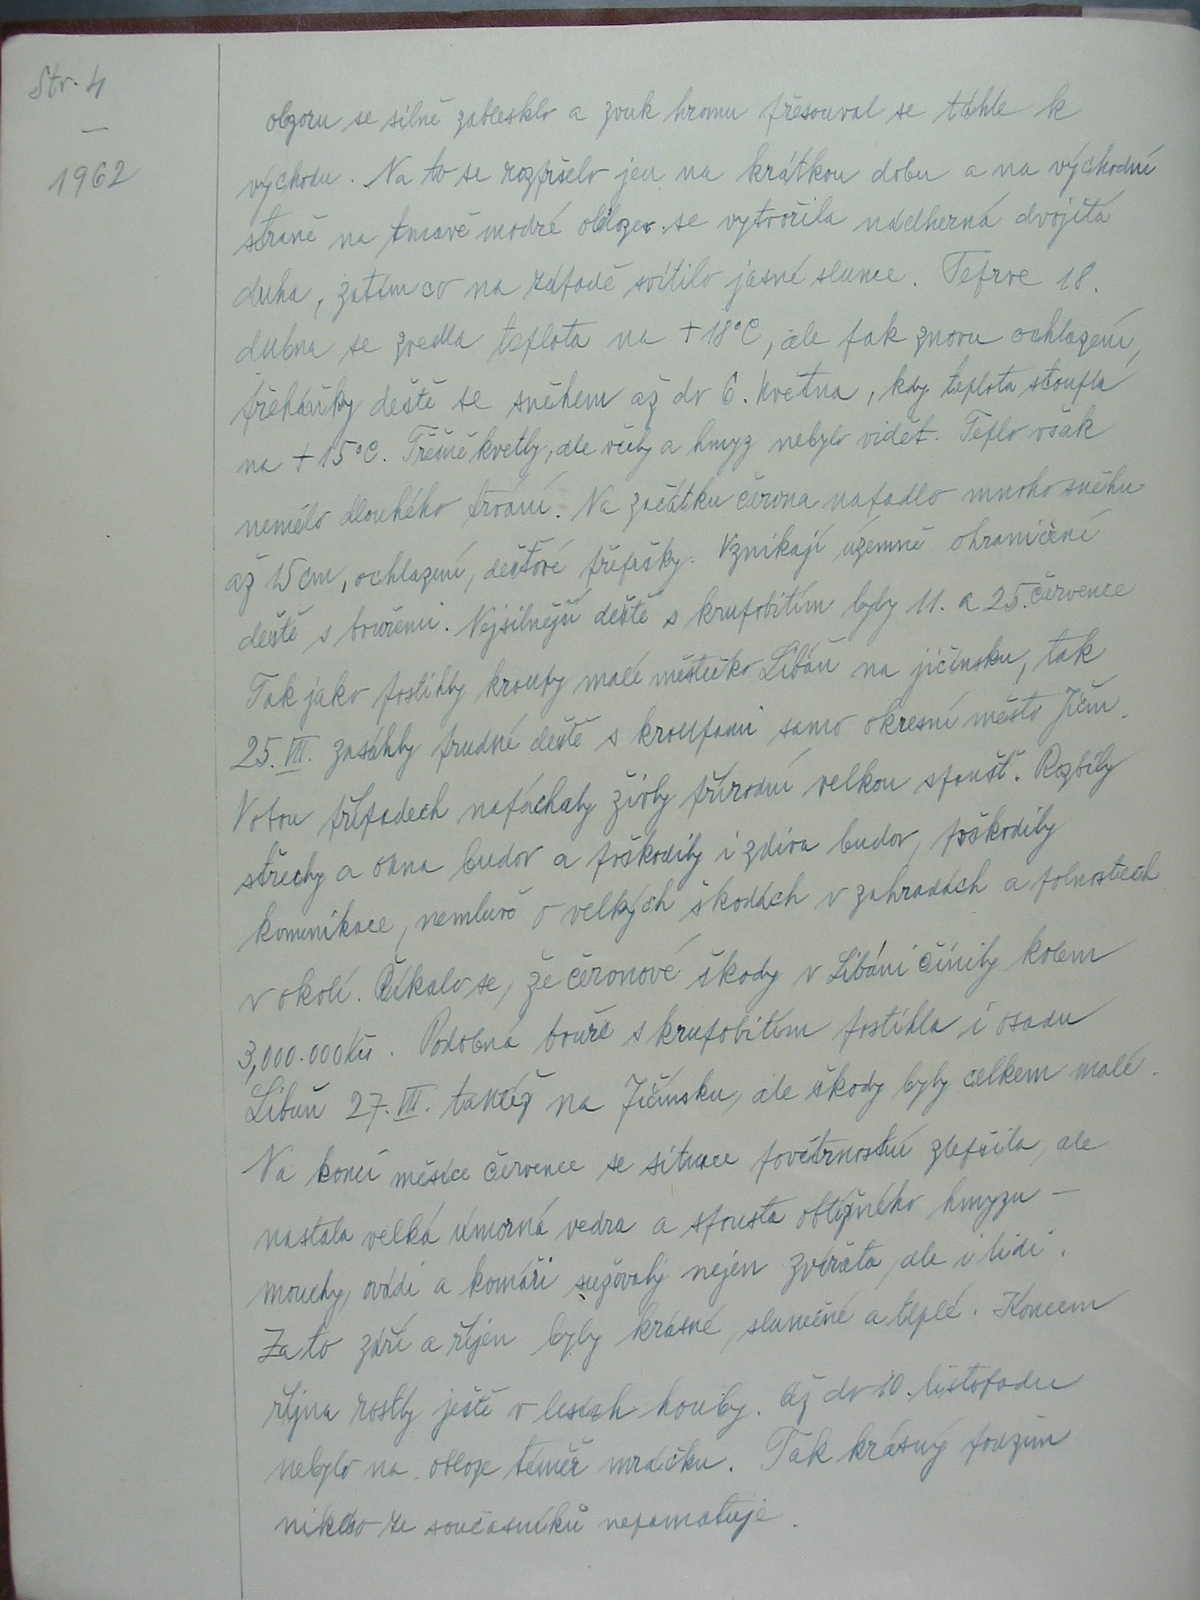 Str. 4
—
1962
obzoru se silně zablesklo a zvuk hromu přesouval se táhle k
východu. Na to se rozpršelo jen na krátkou dobu a na východní
straně na tmavě modré obloze se vytvořila nádherná dvojitá
duha, zatím co na západě svítilo jasné slunce. Teprve 18.
dubna se zvedla teplota na +18°C, ale pak znovu ochlazení,
přeháňky deště se sněhem až do 6. května, kdy teplota stoupla
na +15°C. Třešně kvetly, ale včely a hmyz nebylo vidět. Teplo však
nemělo dlouhého trvání. Na začátku června napadlo mnoho sněhu
až 15 cm, ochlazení, dešťové přepršky. Vznikají územně ohraničené
deště s bouřemi. Nejsilnější deště s krupobitím byly 11. a 25. července
Tak jako postihly kroupy malé městečko Libáň na jičínsku, tak
25. VII. zasáhly prudné deště s kroupami samo okresní město Jičín.
V obou případech napáchaly živly přírodní velkou spoušť. Rozbily
střechy a okna budov a poškodily i zdiva budov, poškodily
komunikace, nemluvě o velkých škodách v zahradách a polnostech
v okolí. Říkalo se, že červnové škody v Libáni činily kolem
3,000.000 Kčs. Podobná bouře s krupobitím postihla i osadu
Libuň 27. VII. taktéž na Jičínsku, ale škody byly celkem malé.
Na konci měsíce července se situace povětrnostní zlepšila, ale
nastala velká úmorná vedra a spousta obtížného hmyzu –
mouchy, ovádi a komáři sužovaly nejen zvířata, ale i lidi.
Za to září a říjen byly krásné, slunečné a teplé. Koncem
října rostly ještě v lesích houby. Až do 10. listopadu
nebylo na obloze téměř mráčku. Tak krásný podzim
nikdo ze současníků nepamatuje.